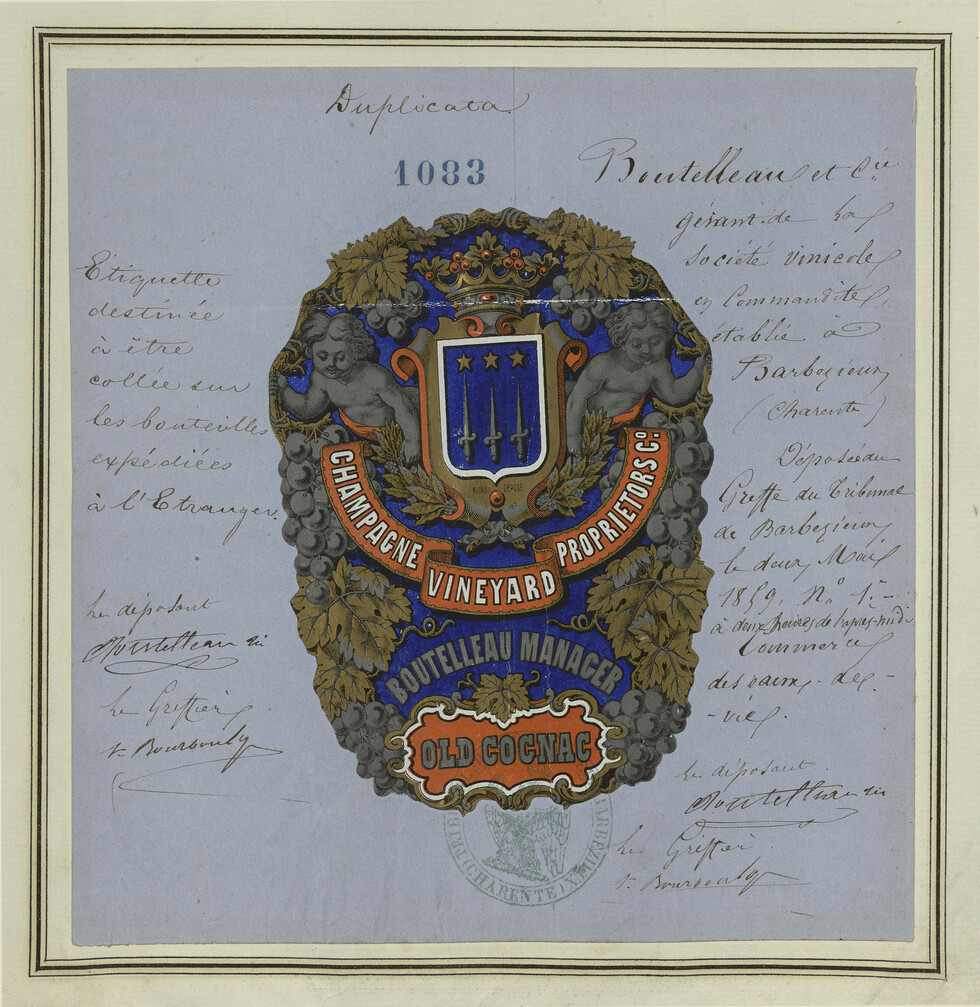 Duplicata
1083
Boutelleau et Cie
gérant de la
société vinicole
en Commandite
établie à
Barbezieux
(Charente)
Déposée au
Greffe du Tribunal
de Barbezieux
le deux Mai
1859 No 1.-
à deux heures de l'après-midi
Commerce
des eaux-de-
-vie.
le déposant
Boutelleau
Le Greffier
Etiquette
destinée
à être
collée sur
les bouteilles
expédiées
à l'Etranger.
Le déposant
Boutelleau
Le Greffier
DÉPOSÉ
CHAMPAGNE
VINEYARD
PROPRIETORS Co.
BOUTELLEAU MANAGER
OLD COGNAC
TRIB
(CHARENTE)
BARBEZIEUX